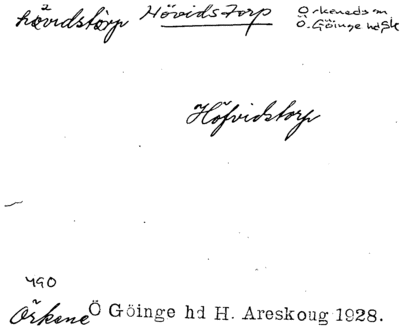 hövidstòrp Hövidstorp Örkeneds sn
Ö. Göinge hd Sk
Höfvidstorp
490
Örkene Ö Göinge hd H. Areskoug 1928.